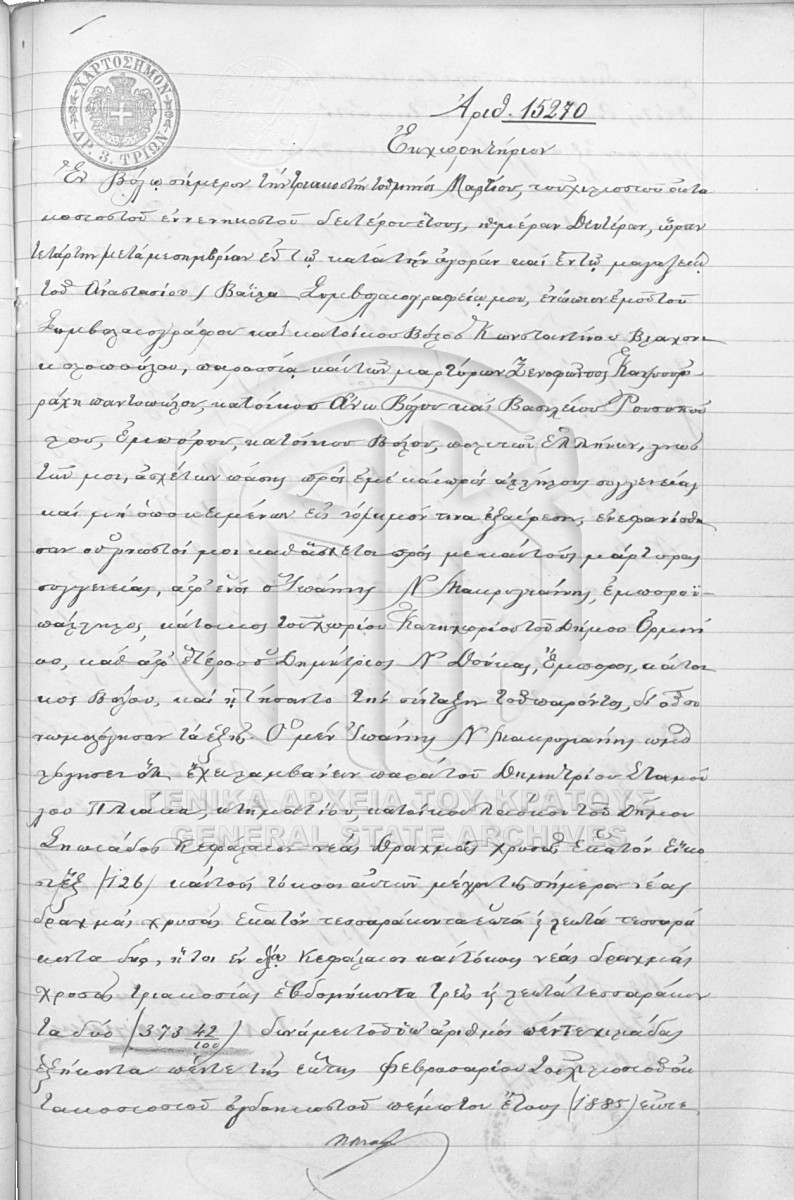 ΧΑΡΤΟΣΗΜΟΝ
ΔΡ. 3. ΤΡΙΩΝ
Ἀριθ. 15270
Ἐκχωρητήριον
Ἐν Βόλῳ σήμερον τὴν τριακοστὴν τοῦ μηνὸς Μαρτίου, τοῦ χιλιοστοῦ ὀκτα
κοσιοστοῦ ἐννενηκοστοῦ δευτέρου ἔτους, ἡμέραν Δευτέραν, ὥραν
τετάρτην μετὰ μεσημβρίαν ἐν τῷ κατὰ τὴν ἀγορὰν καὶ ἐν τῷ μαγαζείῳ
τοῦ Ἀναστασίου Βαΐλα Συμβολαιογραφείῳ μου, ἐνώπιον ἐμοῦ τοῦ
Συμβολαιογράφου καὶ κατοίκου Βόλου Κωνσταντίνου Βλαχονι
κολοπούλου, παρουσίᾳ καὶ τῶν μαρτύρων Ξενοφῶντος
ράχη παντοπώλου, κατοίκου Ἄνω Βόλου καὶ Βασιλείου Ρουσοπού
λου, Ἐμπόρου, κατοίκου Βόλου, πολιτῶν Ἑλλήνων, γνωσ
τῶν μοι, ἀσχέτων πάσης πρὸς ἐμὲ καὶ πρὸς ἀλλήλους συγγενείας
καὶ μὴ ὑποκειμένων εἰς νόμιμόν τινα ἐξαίρεσιν, ἐνεφανίσθη
σαν οἱ γνωστοί μοι καὶ ἄσχετοι πρός με καὶ τοὺς μάρτυρας
συγγενείας, ἀφ' ἑνὸς ὁ Ἰωάννης Ν Μακρυγιάννης, ἐμποροϋ-
πάλληλος, κάτοικος τοῦ χωρίου Κατηχωρίου τοῦ Δήμου Ὁρμινί
ου, καὶ ἀφ' ἑτέρου ὁ Δημήτριος Ν Δούκας, Ἔμπορος, κάτοι
κος Βόλου, καὶ ᾐτήσαντο τὴν σύνταξιν τοῦ παρόντος, δι' οὗ συ
νωμολόγησαν τὰ ἑξῆς. Ὁ μὲν Ἰωάννης Ν Μακρυγιάννης ὡμο
λόγησεν ὅτι, ἔχει λαμβάνειν παρὰ τοῦ Δημητρίου Σταμού
λου κτηματίου, κατοίκου τοῦ Δήμου
Σηπιάδος Κεφάλαιον νέας δραχμὰς χρυσᾶς ἑκατὸν εἴκο
σι ἓξ (126) καὶ τοὺς τόκους αὐτῶν μέχρι τῆς σήμερον νέας
δραχμὰς χρυσᾶς ἑκατὸν τεσσαράκοντα ἑπτὰ ἢ λεπτὰ τεσσαρά
κοντα δύο, ἤτοι ἐν ὅλῳ Κεφάλαιον καὶ τόκους νέας δραχμὰς
χρυσᾶς τριακοσίας ἑβδομήκοντα τρεῖς ἢ λεπτὰ τεσσαράκον
τα δύο (373 42/100) δυνάμει τοῦ ὑπ' ἀριθμὸς πέντε χιλιάδας
ἑξήκοντα πέντε τῆς Φεβρουαρίου τοῦ χιλιοστοῦ ὀκ
τακοσιοστοῦ ὀγδοηκοστοῦ πέμπτου ἔτους (1885)
ΓΕΝΙΚΑ ΑΡΧΕΙΑ ΤΟΥ ΚΡΑΤΟΥΣ
GENERAL STATE ARCHIVES